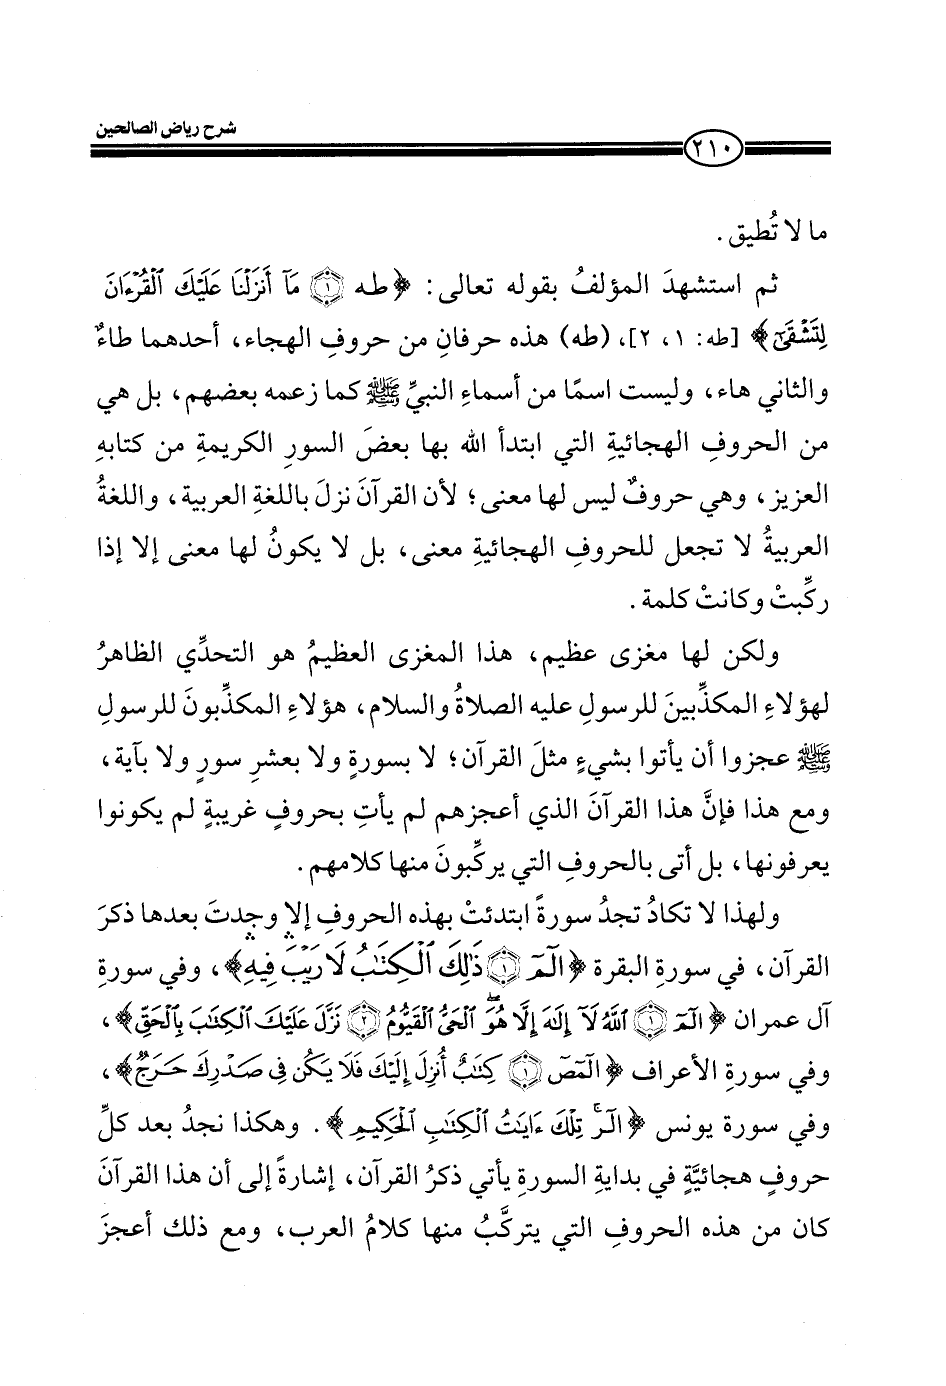 شرح رياض الصالحين
٢١٠
ما لا تُطيق .
ثم استشهدَ المؤلفُ بقوله تعالى: ﴿طه ۝١ مَآ أَنزَلْنَا عَلَيْكَ ٱلْقُرْءَانَ
لِتَشْقَىٰٓ﴾ [طه: ١، ٢]، (طه) هذه حرفانِ من حروفِ الهجاء، أحدهما طاءٌ
والثاني هاء، وليست اسمًا من أسماءِ النبيِّ ﷺ كما زعمه بعضهم، بل هي
من الحروفِ الهجائيةِ التي ابتدأ الله بها بعضَ السورِ الكريمةِ من كتابهِ
العزيز، وهي حروفٌ ليس لها معنى؛ لأن القرآنَ نزلَ باللغةِ العربية، واللغةُ
العربيةُ لا تجعل للحروفِ الهجائيةِ معنى، بل لا يكونُ لها معنى إلا إذا
ركِّبتْ وكانتْ كلمة .
ولكن لها مغزى عظيم، هذا المغزى العظيمُ هو التحدِّي الظاهرُ
لهؤلاءِ المكذِّبينَ للرسولِ عليه الصلاةُ والسلام، هؤلاءِ المكذِّبونَ للرسولِ
ﷺ عجزوا أن يأتوا بشيءٍ مثلَ القرآن؛ لا بسورةٍ ولا بعشرِ سورٍ ولا بآية،
ومع هذا فإنَّ هذا القرآنَ الذي أعجزهم لم يأتِ بحروفٍ غريبةٍ لم يكونوا
يعرفونها، بل أتى بالحروفِ التي يركِّبونَ منها كلامهم.
ولهذا لا تكادُ تجدُ سورةً ابتدئتْ بهذه الحروفِ إلا وجدتَ بعدها ذكرَ
القرآن، في سورةِ البقرة ﴿الٓمٓ ۝١ ذَٰلِكَ ٱلْكِتَٰبُ لَا رَيْبَ ۛ فِيهِ ۛ﴾، وفي سورةِ
آل عمران ﴿الٓمٓ ۝١ ٱللَّهُ لَآ إِلَٰهَ إِلَّا هُوَ ٱلْحَىُّ ٱلْقَيُّومُ ۝٢ نَزَّلَ عَلَيْكَ ٱلْكِتَٰبَ بِٱلْحَقِّ﴾،
وفي سورةِ الأعراف ﴿الٓمٓصٓ ۝١ كِتَٰبٌ أُنزِلَ إِلَيْكَ فَلَا يَكُن فِى صَدْرِكَ حَرَجٌ﴾،
وفي سورة يونس ﴿الٓرۚ تِلْكَ ءَايَٰتُ ٱلْكِتَٰبِ ٱلْحَكِيمِ﴾ . وهكذا نجدُ بعد كلِّ
حروفٍ هجائيَّةٍ في بدايةِ السورةِ يأتي ذكرُ القرآن، إشارةً إلى أن هذا القرآنَ
كان من هذه الحروفِ التي يتركَّبُ منها كلامُ العرب، ومع ذلك أعجزَ